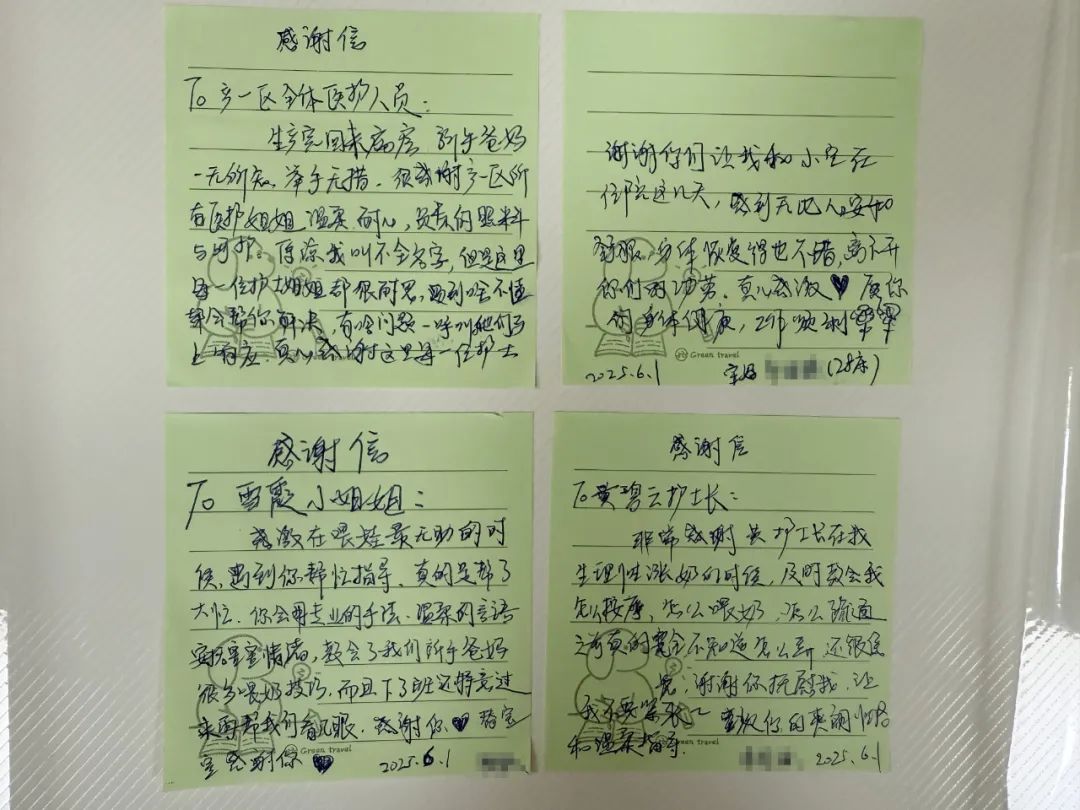 感谢信
To 产一区全体医护人员：
生产完回来病房 新手爸妈
一无所知，举手无措。很感谢产一区所
有医护姐姐 温柔、耐心，负责的照料
与呵护。原谅我叫不全名字，但是这里
每一位护士姐姐都很耐心，遇到啥不懂
都会帮你解决，有啥问题一呼叫她们马
上响应。真心感谢这里每一位护士
谢谢你们让我和小宝在
住院这几天，感到无比人安和
舒服，身体恢复得也不错，离不开
你们的功劳。真心感激♥ 愿你
们身体健康，工作顺利
Green travel
2025.6.1 宝妈 (28床)
感谢信
To 雪霞小姐姐：
感激在喂娃最无助的时
候，遇到你帮忙指导。真的是帮了
大忙。你会用专业的手法、温柔的言语
安抚宝宝情绪，教会了我们新手爸妈
很多喂奶技巧，而且下了班还特意过
来再帮我们看几眼。感谢你♥ 替宝
宝感谢你♥
Green travel
2025.6.1
感谢信
To 黄碧云护士长：
非常感谢 黄护士长在我
生理性涨奶的时候，及时教会我
怎么按摩，怎么喂奶，怎么疏通
之前真的完全不知道怎么弄 还很焦
虑，谢谢你抚慰我，让
我不要紧张～ 喜欢你的爽朗性格
和温柔指导。
2025.6.1